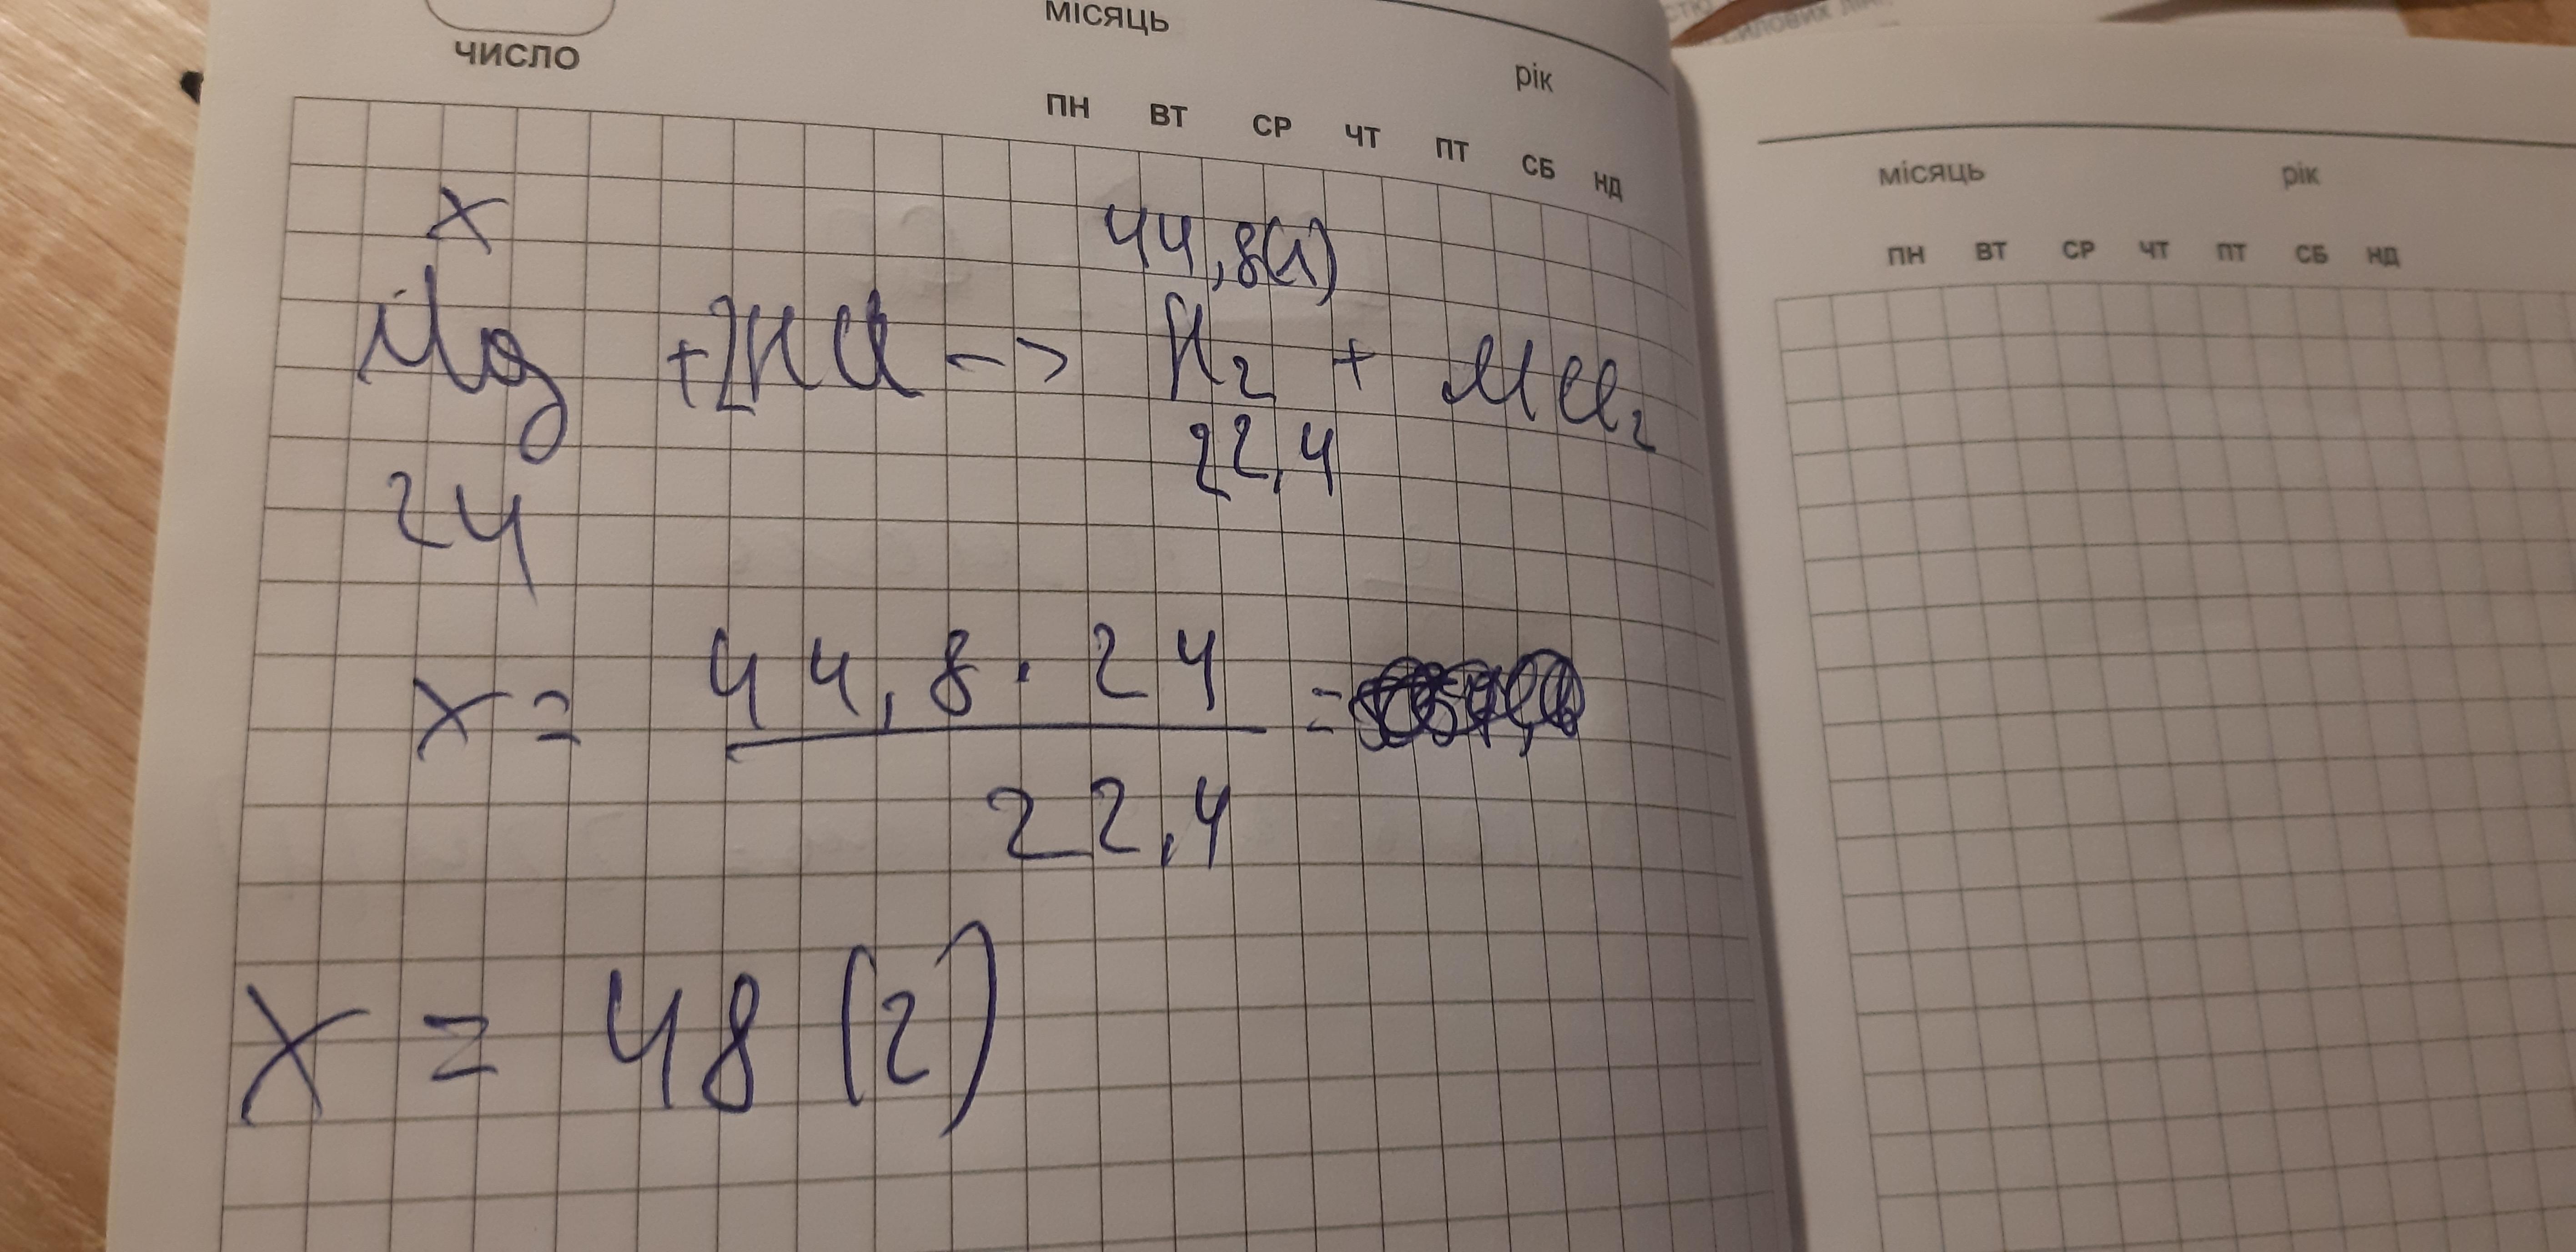 місяць
ЧИСЛО
рік
ПН ВТ СР ЧТ ПТ СБ НД
x 44,8(л)
Mg + 2HCl -> H2 + MCl2
24 22,4
x = 44,8 · 24 =
22,4
x = 48 (г)
силових
місяць рік
ПН ВТ СР ЧТ ПТ СБ НД